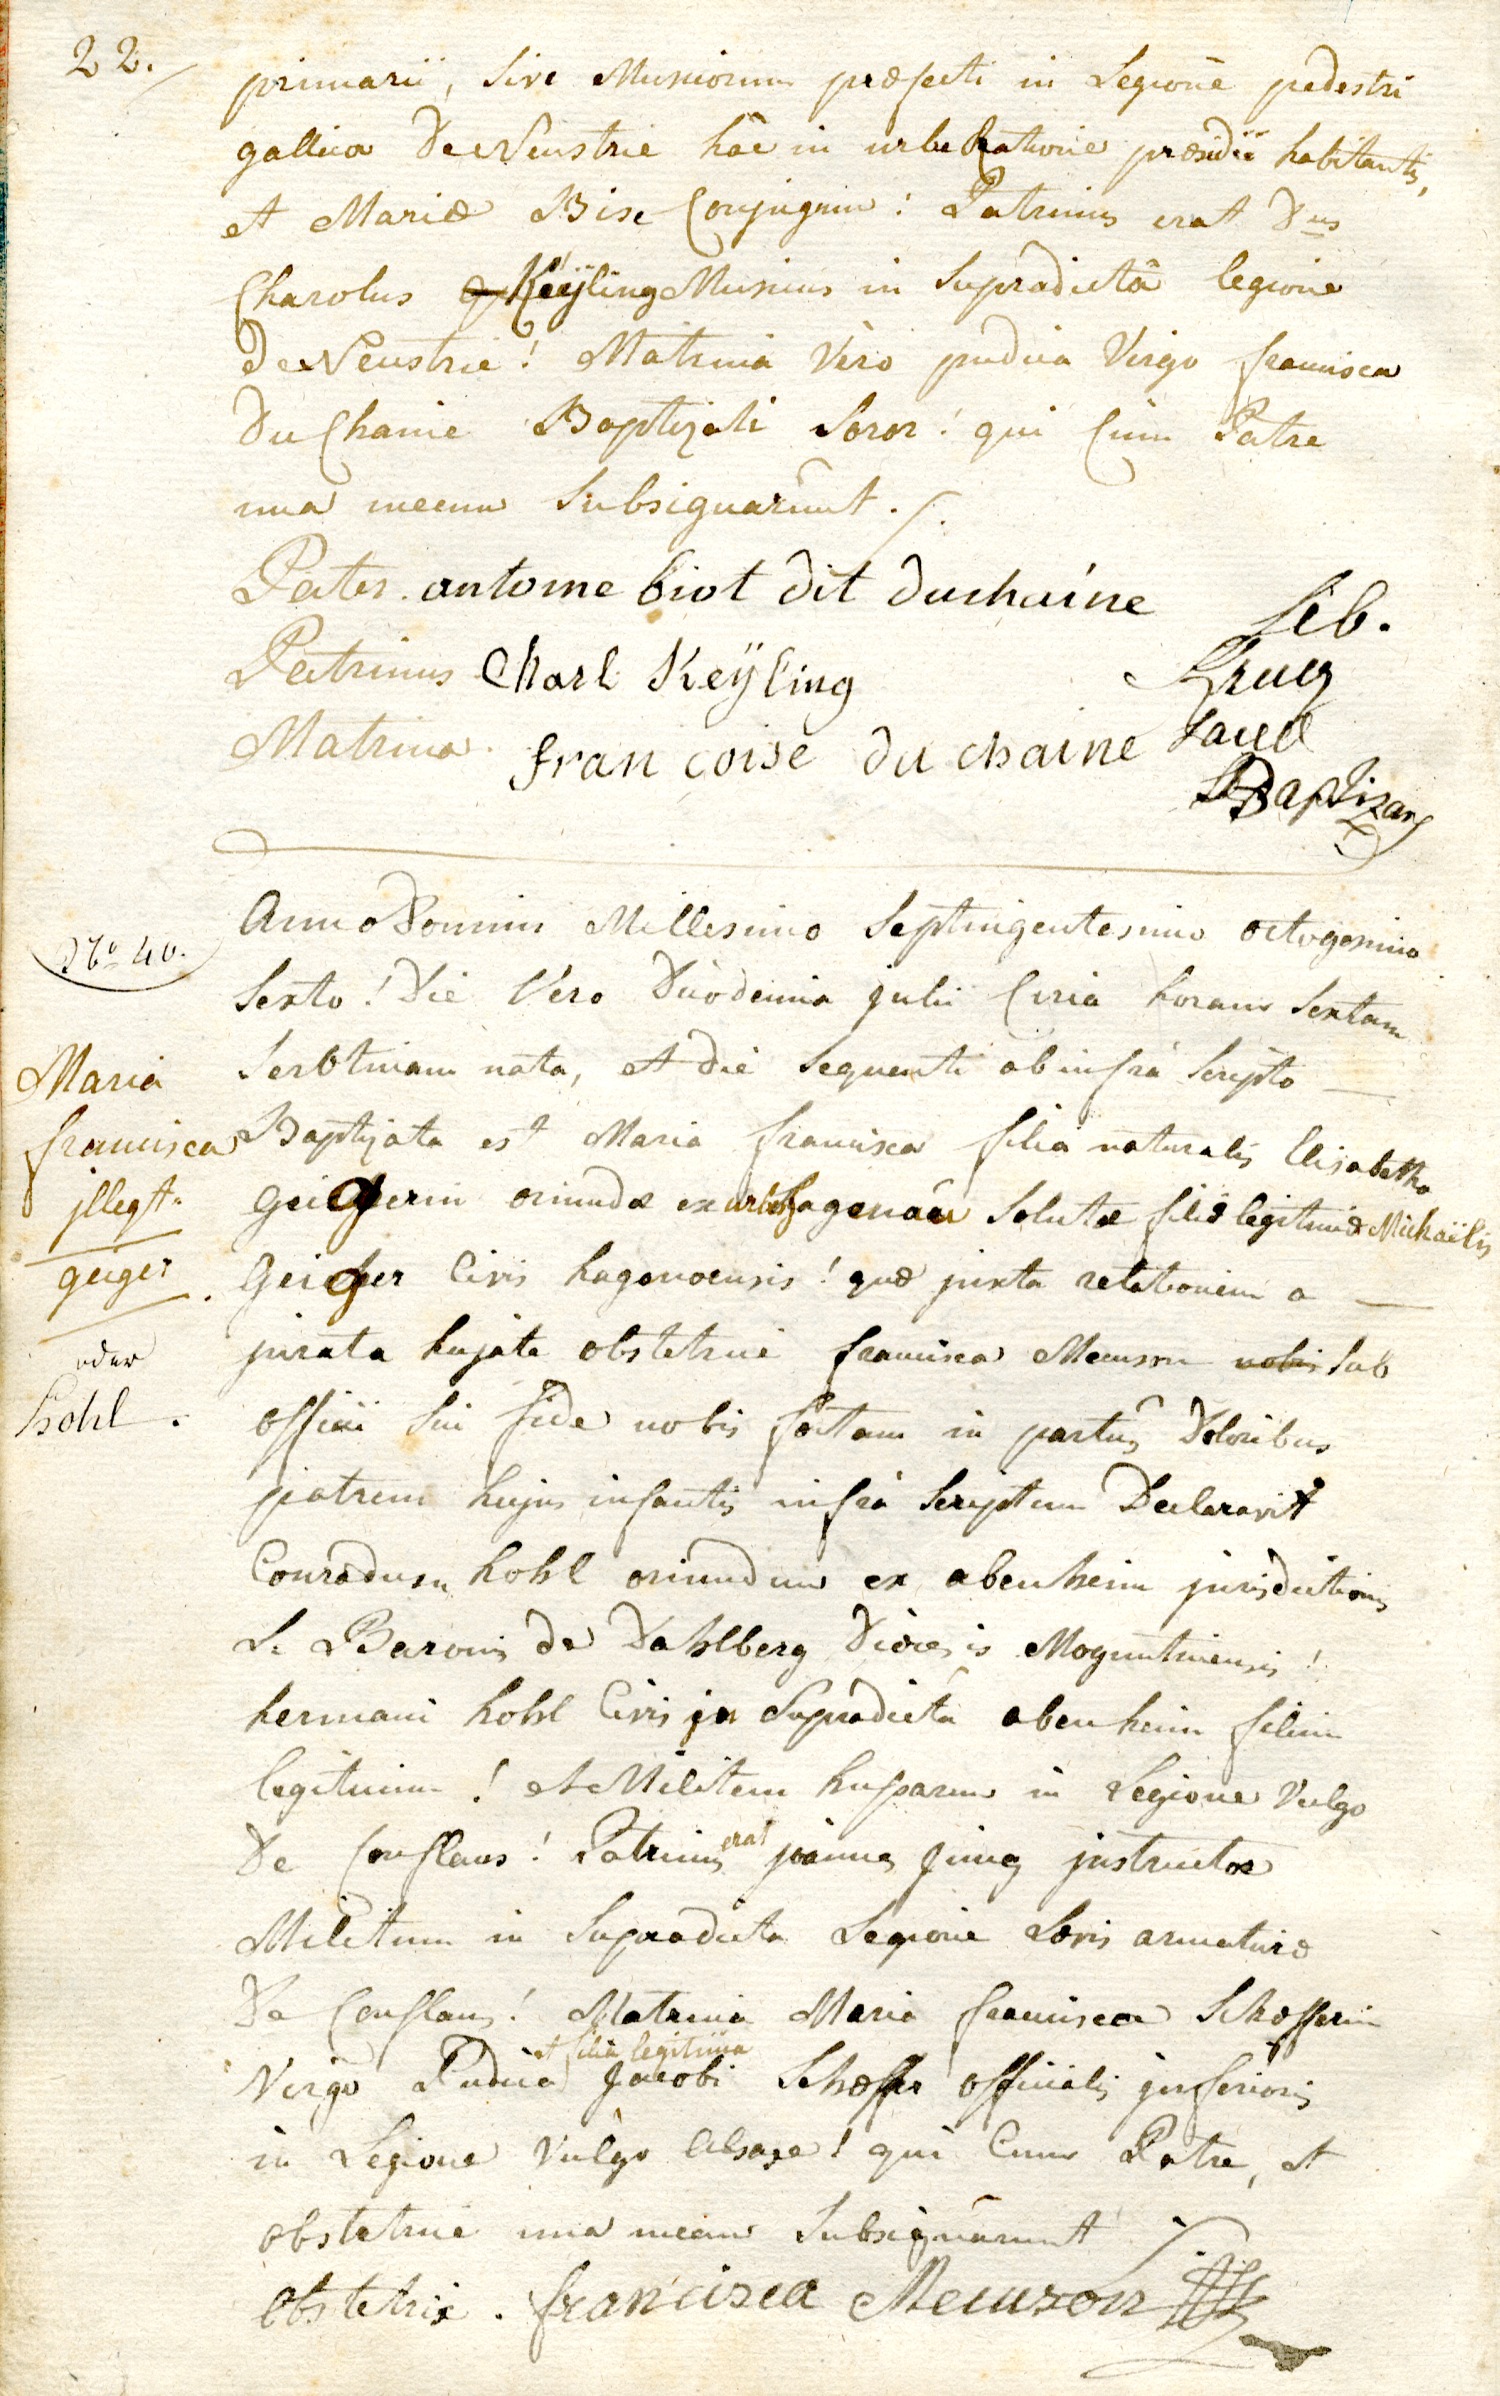 22.
primarii, sive Musicorum præfecti in Legione pedestri
gallica De Neustrie hâc in urbe Ratione præsidii habitantis,
et Mariæ Bise Conjugum: Patrinus erat Dnus
Charolus Keÿling Musicus in Supradictâ legione
De Neustrie! Matrina Vero pudica Virgo francisca
Du Chaine Baptizati Soror! qui Cum Patre
una mecum Subsignarunt ./.
Pater. antoine biot dit duchaine
Seb.
Patrinus Charl Keÿling
Krug
Matrina. francoise du chaine
Sacell
Baptizans
Anno Domini Millesimo Septingentesimo octogesimo
No 40.
Sexto! Die Vero Duodecima julii Circa horam Sextam
Serotinam nata, et die sequenti ab infra Scripto
Maria
francisca
illegt.
geiger
oder
Kohl.
Baptizata est Maria francisca filia naturalis Elisabetha
Geigerin oriundæ ex urbe hagenau Solutæ filiæ legitimæ Michaëlis
Geiger Civis hagenoensis! quæ juxta relationem a
jurata hujate obstetrice francisca Meuson nobis sub
officii sui fide nobis factam in partus Doloribus
patrem hujus infantis infra Scriptum Declaravit
Conradum Kohl oriundum ex abenheim jurisdictionis
L. Baronis de Dahlberg Diœcesis Moguntinensis!
hermani Kohl Civis in Supradicta abenheim filium
legitimum! et Militem husarum in Legione Vulgo
De Conflans! Patrinus erat joannes jung instructor
Militum in Supradicta Legione Levis armaturæ
De Conflans! Matrina Maria francisca Schæfferin
Virgo Pudica et filia legitima Jacobi Schæffer officialis inferioris
in Legione Vulgo Alsace! qui Cum Patre, et
obstetrice una mecum Subsignarunt ./.
Obstetrix. francisca Meuson